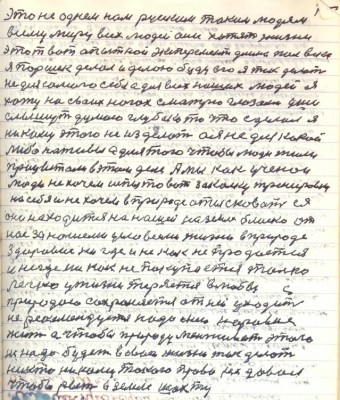 это не однем нам руским таким людям
всему миру всех людей они хотят жизни
этот вот опытной эксперемент
я Поршек делал и делаю буду его я так делать
не для самого себя а для всех наших людей я
хожу на своих ногах смотрю глазами уши
слышут думаю глубоко то что сделал я
никому этого не из делать а я не для какой
либо наживы а для того чтобы люди жили
а мы как ученои
люди не хочем идти то вот закалку тренировку
на себя и не хочем в природе отысковать ся
они находится на нашей на земле близко от
нас за ношими условеями жизни в природе
здоровие ни где и не как не продается
и негде ни как не покупается только
легко у жизни теряется в любовь
природою сохраняется от ней уходить
не рекомендуется надо с ней
жить а чтобы природу этого
не надо будет в своей жизни так делать
никто никому такого право не довал
чтобы рвать в земле шахту